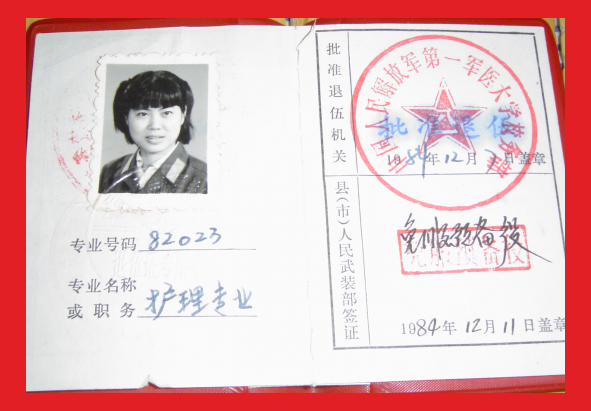 专业号码 82023
专业名称
或职务 护理专业
批准退伍机关
中国人民解放军第一军医大学教务部
批准退伍
1984年12月7日盖章
县(市)人民武装部签证
免服预备役
1984年12月11日盖章